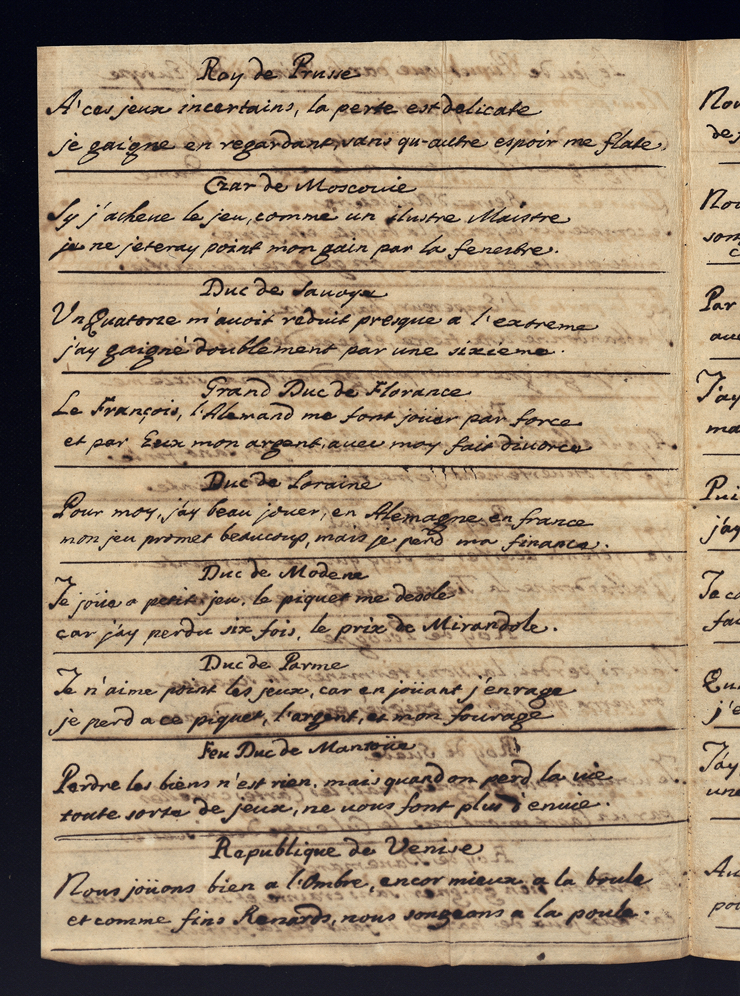 Roy de Prusse
A' ces jeux incertains, la perte est delicate
je gaigne en regardant, sans qu-autre espoir me flate.
Czar de Moscouie
Sy j'acheue le jeu, comme un ilustre Maistre
je ne jeteray point mon gain par la fenestre.
Duc de Sauoye
Un Quatorze m'auoit réduit presque a l'extreme
j'ay gaigné doublement par une sixiéme.
Grand Duc de Florance
Le François, l'Alemand me font joüer par force
et par Eux mon argent, auec moy fait diuorce
Duc de Loraine
Pour moy, j'ay beau jouer, en Alemagne en france
mon jeu promet beaucoup, mais je perd ma finance.
Duc de Modene
Je joüe a petit jeu, le piquet me desole
car j'ay perdu six fois, le prix de Mirandole.
Duc de Parme
Je n'aime point les jeux, car en joüant j'enrage
je perd a ce piquet, l'argent, et mon fourage
Feu Duc de Mantoüe
Perdre les biens n'est rien, mais quand on perd la vie
toute sorte de jeux, ne vous font plus d'enuie.
Republique de Venise
Nous joüons bien a l'Ombre, encor mieux a la boule
et comme fins Renards, nous songeons a la poule.
Nou
de j
Nou
som
c
Par
aue
J'ay
ma
Pui
j'ay
Je co
fai
Qu
j'e
J'ay
une
Au
pou